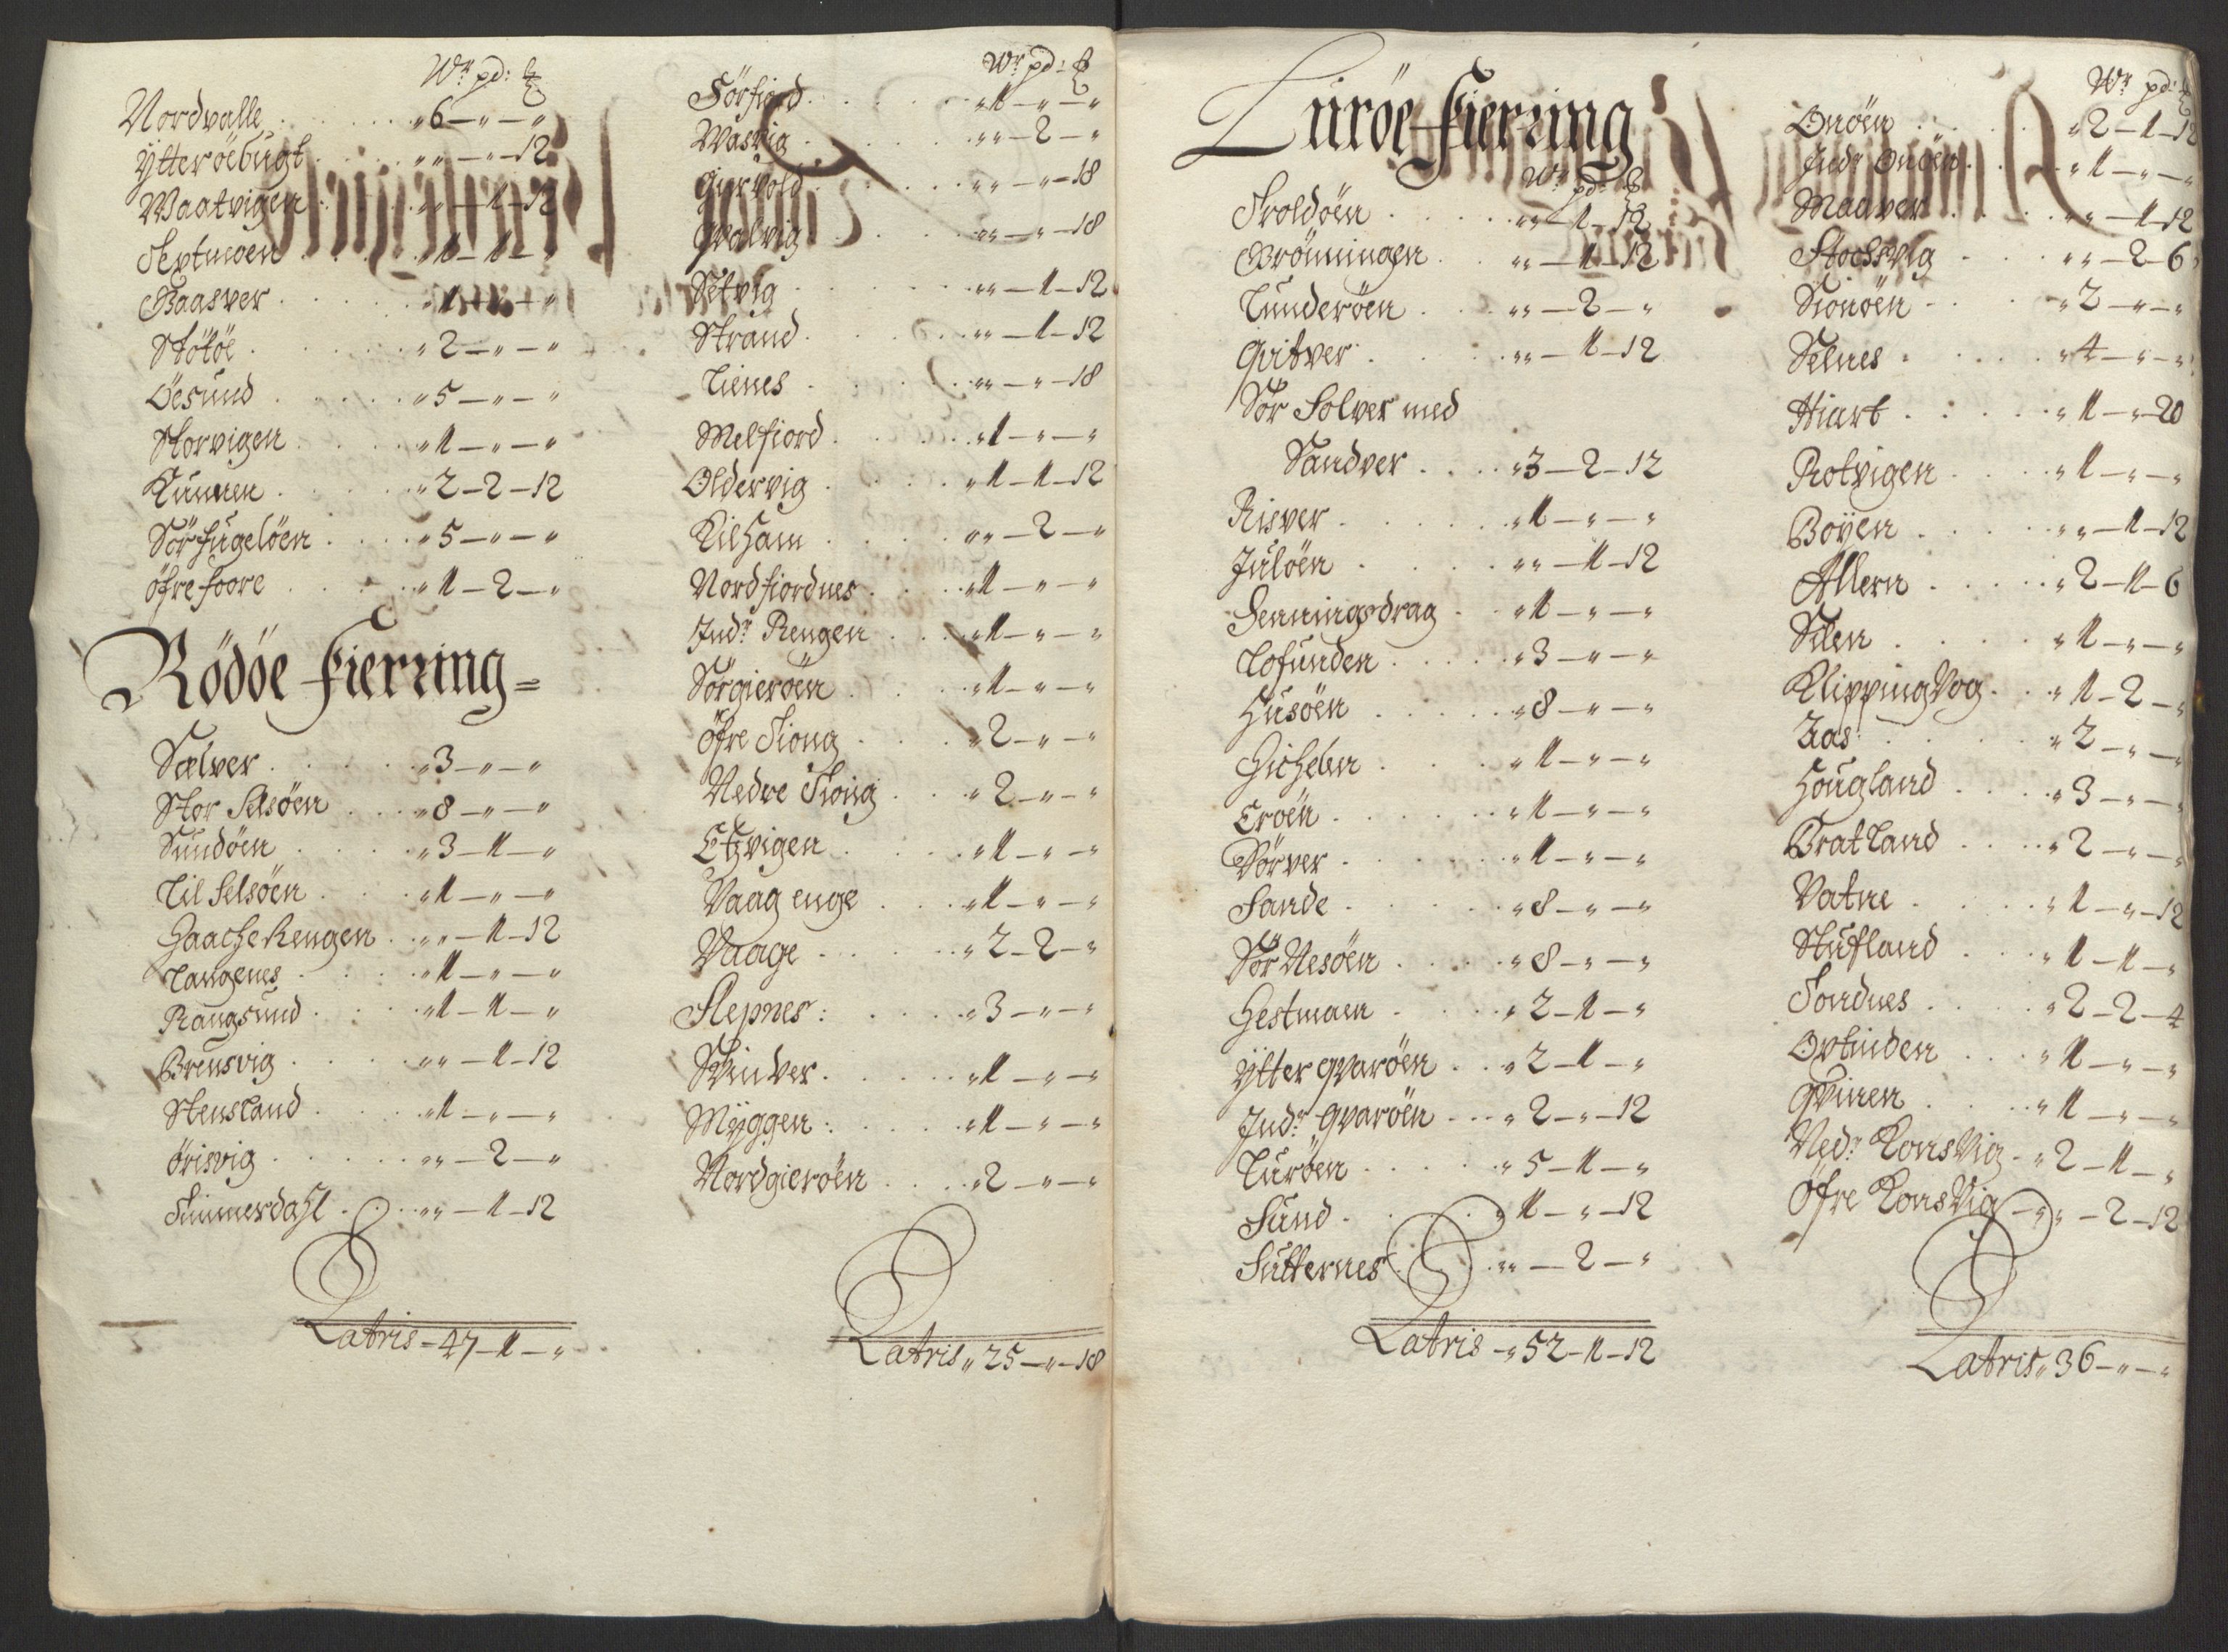 Wr pd: ℔
Nordvalle . . . „6 — „ — „
Ytteröebugt . . . „„ — „ — 12
Waatvigen . . . „„ — 1 — 12
Skutmoen . . . „1 — 1 — „
Baasver . . . „1 — „ — „
Stötöe . . . „2 — „ — „
Öesund . . . „5 — „ — „
Storvigen . . . „1 — „ — „
Kunnen . . . „2 — 2 — 12
Sörfugelöen . . . „5 — „ — „
öfre foore . . . „1 — 2 — „
Rödöe fierring =
Sælver . . . „3 — „ — „
Stor Selsöen . . . „8 — „ — „
Sundöen . . . „3 — 1 — „
Lil Selsöen . . . „1 — „ — „
Haache Rengen . . „„ — 1 — 12
Langenes . . . „1 — „ — „
Rangsund . . . „1 — 1 — „
Brensvig . . . „„ — 1 — 12
Stensland . . . „1 — „ — „
örisvig . . . „„ — 2 — „
Simmerdahl . . . „„ — 1 — 12
Latris — 47 — 1 — „
Wr pd: ℔
Sörfiord . . . „1 — „ — „
Wasvig . . . „„ — 2 — „
Giervold . . . „„ — „ — 18
Qvalvig . . . „„ — „ — 18
Setvig . . . „„ — 1 — 12
Strand . . . „„ — 1 — 12
Lienes . . . „„ — „ — 18
Melfiord . . . „1 — „ — „
Oldervig . . . „1 — 1 — 12
Kilham . . . „„ — 2 — „
Nordfiordnes . . . „1 — „ — „
Indr Rengen . . . „1 — „ — „
Sörgieröen . . . „1 — „ — „
öfre Siong . . . „2 — „ — „
Nedre Siong . . . „2 — „ — „
Etzvigen . . . „1 — „ — „
Vaag enge . . . „1 — „ — „
Vaage . . . „2 — 2 — „
Slepnes : . . . „3 — „ — „
Svinver . . . „1 — „ — „
Myggen : . . . „1 — „ — „
Nordgieröen . . . „2 — „ — „
Latris „ 25 — „ — 18
Luröe fierring
Wr pd: ℔
Troldöen . . . „„ — 1 — 12
Brönningen . . „„ — 1 — 12
Lunderöen . . „„ — 2 — „
Qvitver . . . „„ — 1 — 12
Sör Solver med
Sandver . . . „3 — 2 — 12
Risver . . . „1 — „ — „
Julöen . . . „„ — 1 — 12
Senningsdrag . . „1 — „ — „
Lofunden . . . „3 — „ — „
Husöen . . . „8 — „ — „
Gichelen . . . „1 — „ — „
Eroen . . . „1 — „ — „
Sörver . . . „1 — „ — „
Sande . . . „8 — „ — „
Sör Nesöen . . . „8 — „ — „
Hestmaen . . . „2 — 1 — „
Ytter qvaröen . . „2 — 1 — „
Indr: Qvaröen . . „2 — „ — 12
Luröen . . . „5 — 1 — „
Sund . . . „1 — „ — 12
Sutternes . . . „„ — 2 — „
Latris — „52 — 1 — 12
Wr pd: ℔
Onöen . . . „2 — 1 — 12
Indr Onöen . . . „1 — „ — „
Maaver . . . „„ — 1 — 12
Stochsvig . . . „„ — 2 — 6
Sionöen . . . „2 — „ — „
Selnes . . . „4 — „ — „
Hiart . . . „1 — „ — 20
Rotvigen . . . „1 — „ — „
Boyen . . . „„ — 1 — 12
Allern . . . „2 — 1 — 6
Silen . . . „1 — „ — „
Klipping Vog . . „1 — 2 — „
Aas . . . „2 — „ — „
Hougland . . . „3 — „ — „
Bratland . . . „2 — „ — „
Vatne . . . „1 — „ — 12
Stufland . . . „1 — 1 — „
Sordnes . . . „2 — 2 — 4
Ortinden . . . „1 — „ — „
Qvinen . . . „1 — „ — „
Nedr: Konsvig — „2 — 1 — „
Öfre Konsvig — „„ — 2 — 12
Latris „ 36 — „ — „